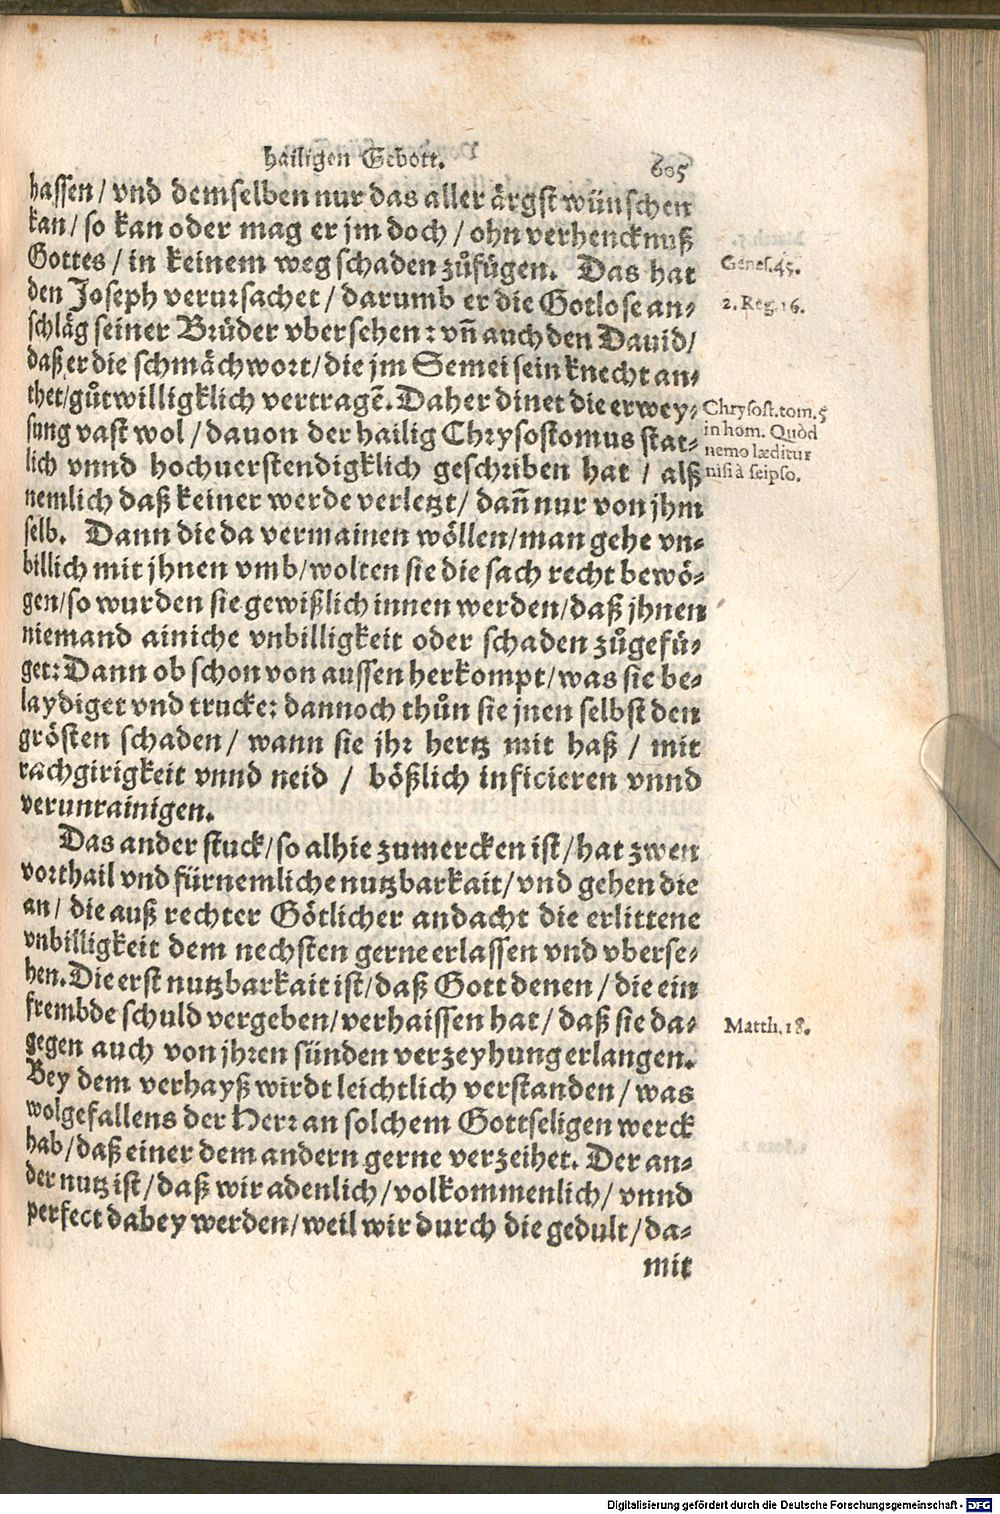 hailigen Gebott. 605
hassen/ vnd demselben nur das aller ärgst wünschen
kan/ so kan oder mag er jm doch/ ohn verhencknuß
Gottes/ in keinem weg schaden zůfügen. Das hat
Genes. 45.
den Joseph verursachet/ darumb er die Gotlose an-
2. Reg. 16.
schläg seiner Brüder vbersehen: vñ auch den Dauid/
daß er die schmächwort/ die jm Semei sein knecht an-
thet/ gůtwilligklich vertragẽ. Daher dinet die erwey-
Chrysost. tom. 5
sung vast wol/ dauon der hailig Chrysostomus stat-
in hom. Quòd
nemo læditur
lich vnnd hochuerstendigklich geschriben hat/ alß
nisi à seipso.
nemlich daß keiner werde verletzt/ dañ nur von jhm
selb. Dann die da vermainen wöllen/ man gehe vn-
billich mit jhnen vmb/ wolten sie die sach recht bewö-
gen/ so wurden sie gewißlich innen werden/ daß jhnen
niemand ainiche vnbilligkeit oder schaden zůgefü-
get: Dann ob schon von aussen herkompt/ was sie be-
laydiget vnd trucke: dannoch thůn sie jnen selbst den
grösten schaden/ wann sie jhr hertz mit haß/ mit
rachgirigkeit vnnd neid/ bößlich inficieren vnnd
verunrainigen.
Das ander stuck/ so alhie zumercken ist/ hat zwen
vorthail vnd fürnemliche nutzbarkait/ vnd gehen die
an/ die auß rechter Götlicher andacht die erlittene
vnbilligkeit dem nechsten gerne erlassen vnd vberse-
hen. Die erst nutzbarkait ist/ daß Gott denen/ die ein
frembde schuld vergeben/ verhaissen hat/ daß sie da-
Matth. 18.
gegen auch von jhren sünden verzeyhung erlangen.
Bey dem verhayß wirdt leichtlich verstanden/ was
wolgefallens der Herr an solchem Gottseligen werck
hab/ daß einer dem andern gerne verzeihet. Der an-
der nutz ist/ daß wir adenlich/ volkommenlich/ vnnd
perfect dabey werden/ weil wir durch die gedult/ da-
mit
Digitalisierung gefördert durch die Deutsche Forschungsgemeinschaft - DFG